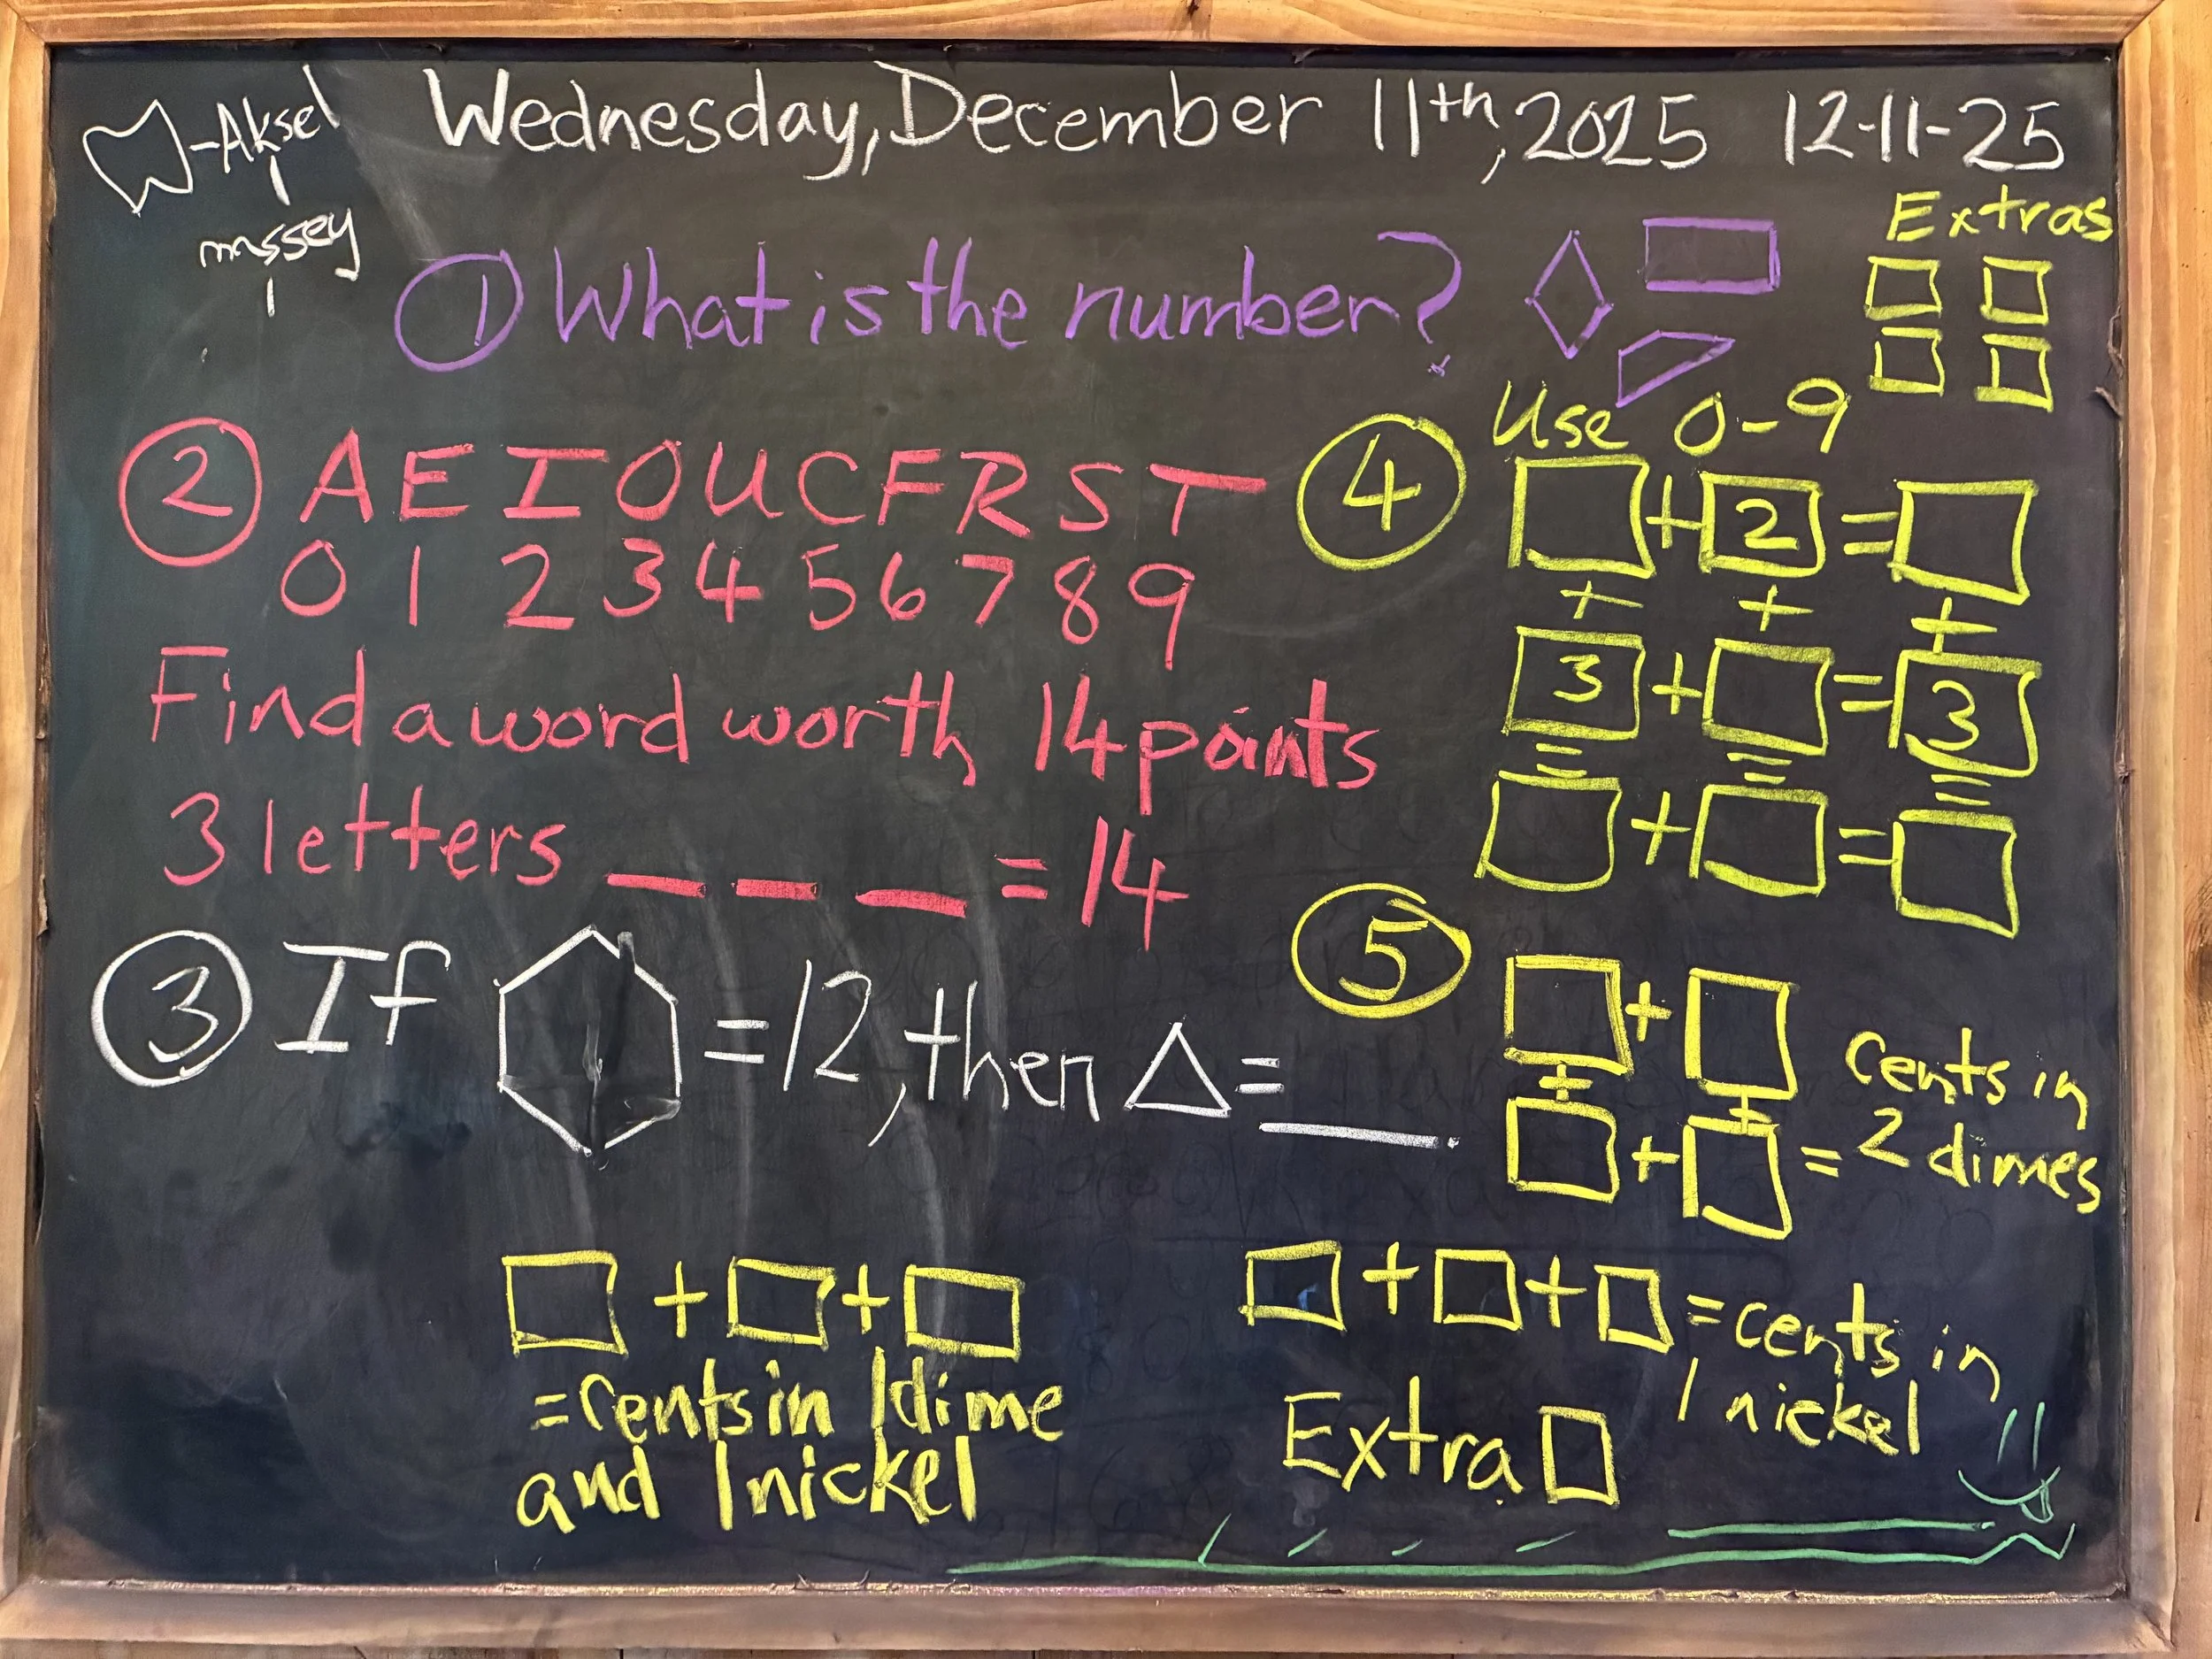 -Aksel
massey
Wednesday, December 11th, 2025 12-11-25
① What is the number?
Extras
② A E I O U C F R S T
0 1 2 3 4 5 6 7 8 9
Find a word worth 14 points
3 letters _ _ _ = 14
③ If ⬡ = 12, then △ = ___.
④ Use 0-9
□ + 2 = □
+ + +
3 + □ = 3
= = =
□ + □ = □
⑤ □ + □
+ +
□ + □ = cents in
2 dimes
□ + □ + □
= cents in 1 dime
and 1 nickel
□ + □ + □ = cents in
1 nickel
Extra □